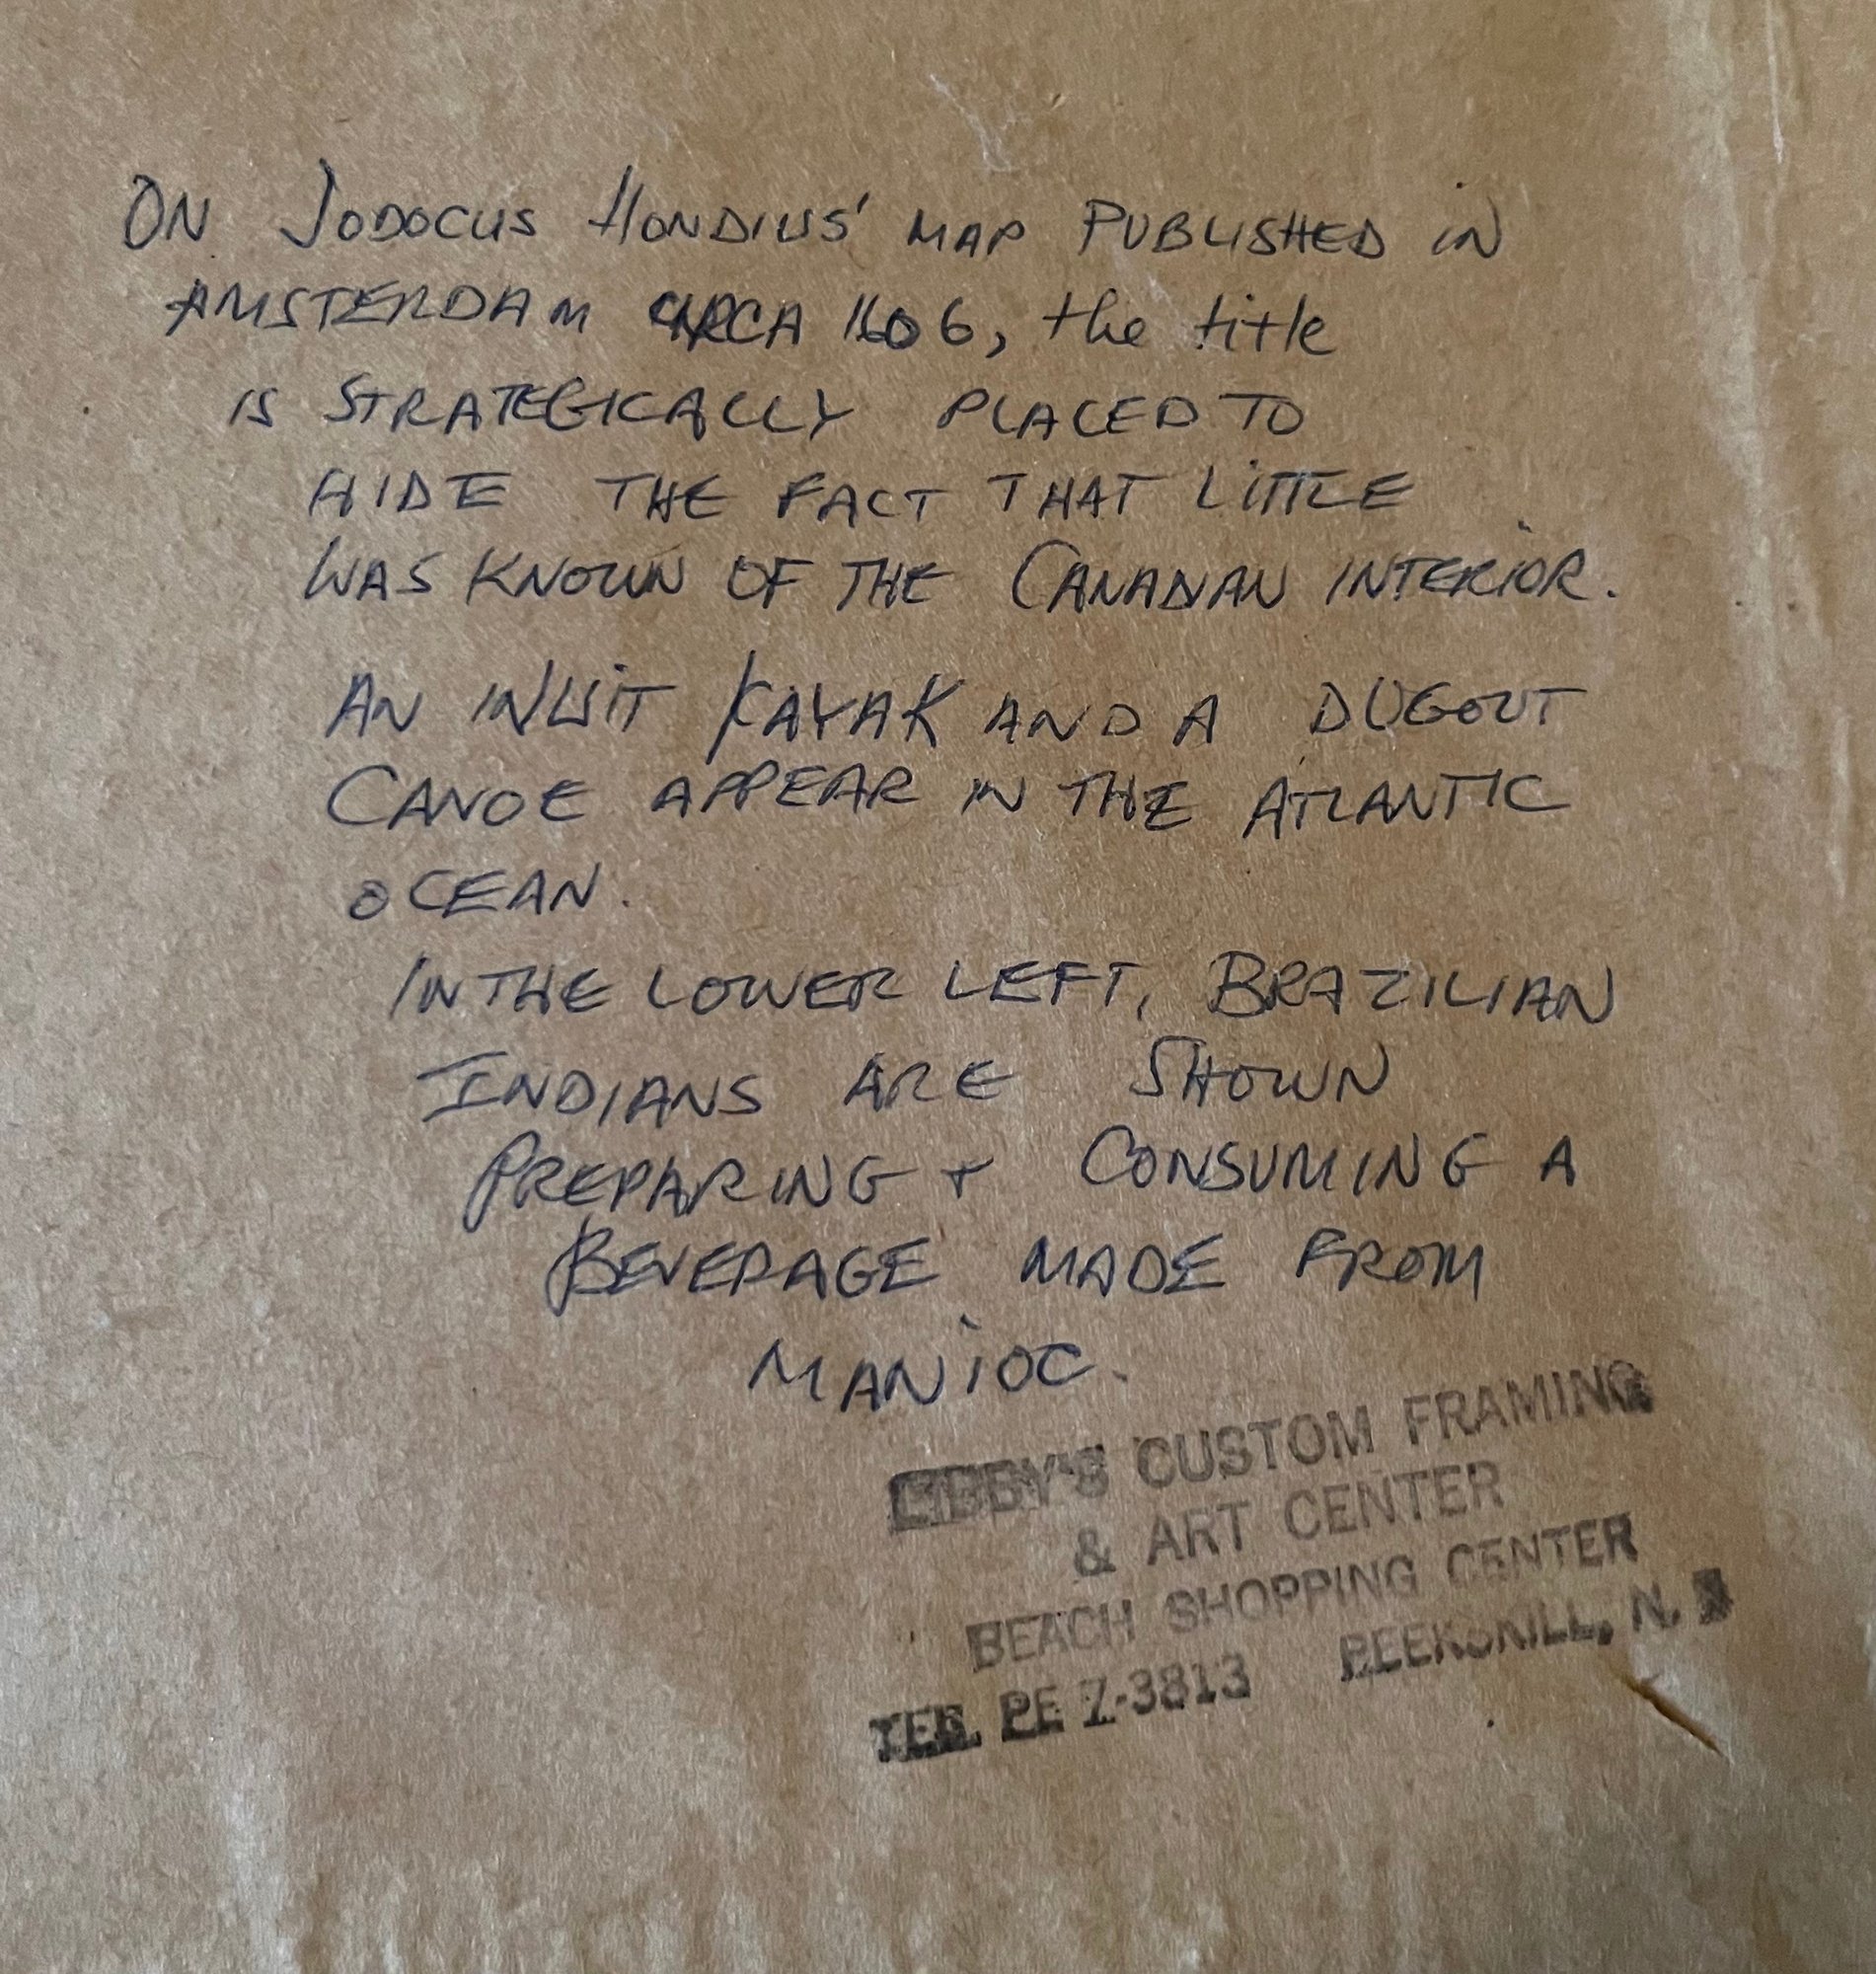 ON JODOCUS HONDIUS' MAP PUBLISHED IN
AMSTERDAM CIRCA 1606, the title
IS STRATEGICALLY PLACED TO
HIDE THE FACT THAT LITTLE
WAS KNOWN OF THE CANADIAN INTERIOR.
AN INUIT KAYAK AND A DUGOUT
CANOE APPEAR IN THE ATLANTIC
OCEAN.
IN THE LOWER LEFT, BRAZILIAN
INDIANS ARE SHOWN
PREPARING + CONSUMING A
BEVERAGE MADE FROM
MANIOC.
LIBBY'S CUSTOM FRAMING
& ART CENTER
BEACH SHOPPING CENTER
TEL. PE 7-3813 PEEKSKILL, N.